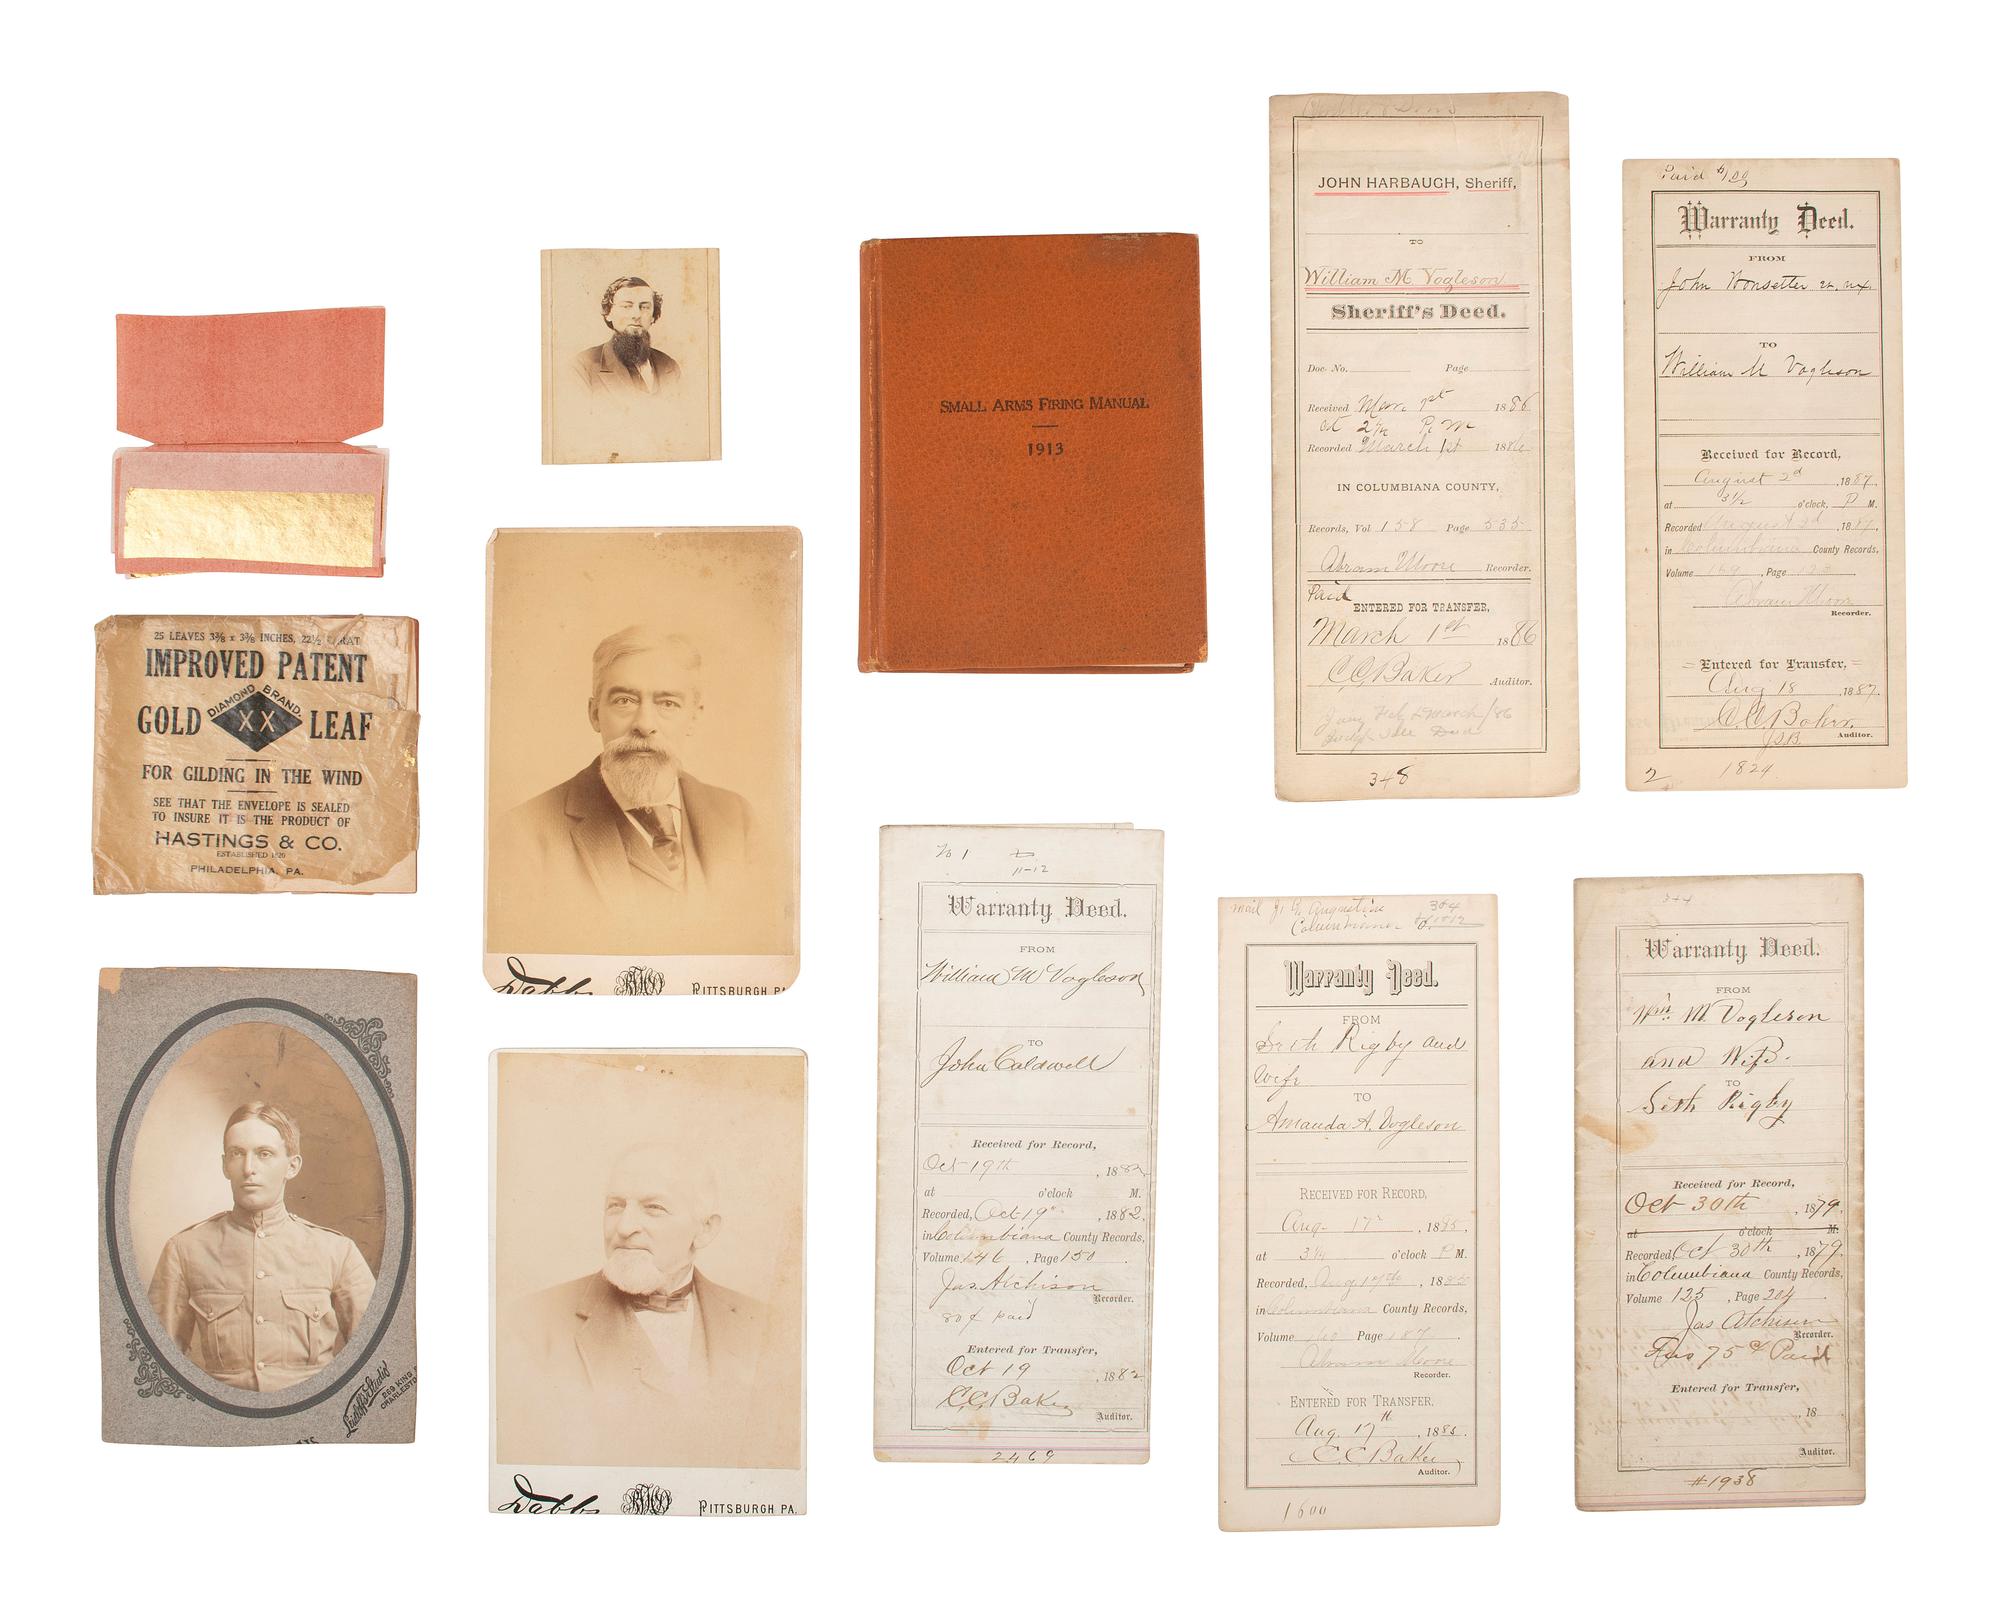 25 LEAVES 3⅜ x 3⅜ INCHES, 22½ RAT
IMPROVED PATENT
DIAMOND BRAND.
GOLD XX LEAF
FOR GILDING IN THE WIND
SEE THAT THE ENVELOPE IS SEALED
TO INSURE IT IS THE PRODUCT OF
HASTINGS & CO.
ESTABLISHED 1820
PHILADELPHIA, PA.
Studio
269 KING
CHARLESTO
Dabbs PITTSBURGH PA
Dabbs PITTSBURGH PA.
SMALL ARMS FIRING MANUAL
1913
JOHN HARBAUGH, Sheriff,
TO
William M Vogleson
Sheriff's Deed.
Doc. No. Page
Received Mar. 1st 1886
at P. M
Recorded March 1st 1886
IN COLUMBIANA COUNTY,
Records, Vol 158 Page 535
Abram Moore Recorder.
Paid
ENTERED FOR TRANSFER,
March 1st 1886
C.C. Baker Auditor.
348
Paid $1.00
Warranty Deed.
FROM
John Wonsetter et. ux.
TO
William M Vogleson
Received for Record,
August 2d 1887,
at 3½ o'clock, P M.
Recorded August 2d, 1887,
in Columbiana County Records,
Volume 169, Page
Abram Moore
Recorder.
Entered for Transfer,
Aug 18, 1887.
C.C. Baker
Auditor.
J.B.
2 1824
No 1
11-12
Warranty Deed.
FROM
William M Vogleson
TO
John Caldwell
Received for Record,
Oct 19th, 1882
at o'clock M.
Recorded, Oct 19", 1882.
in Columbiana County Records,
Volume 146, Page 150
Jas. Atchison
Recorder.
80¢ paid
Entered for Transfer,
Oct 19, 1882
C.C. Baker
Auditor.
2469
mail J. G. Augustine 304
Columbiana O.
Warranty Deed.
FROM
Seth Rigby and
Wife
TO
Amanda A. Vogleson
RECEIVED FOR RECORD,
Aug. 17", 1885,
at 3¼ o'clock P M.
Recorded, Aug 17th, 1885
in Columbiana County Records,
Volume 160 Page 187
Abram Moore
Recorder.
ENTERED FOR TRANSFER,
Aug. 17th, 1885.
C.C. Baker
Auditor.
1600
344
Warranty Deed.
FROM
Wm. M. Vogleson
and Wife.
TO
Seth Rigby
Received for Record,
Oct 30th, 1879.
at o'clock M.
Recorded, Oct 30th, 1879.
in Columbiana County Records,
Volume 125, Page 204
Jas Atchison
Recorder.
Fees 75 c Paid
Entered for Transfer,
, 18
Auditor.
#1938